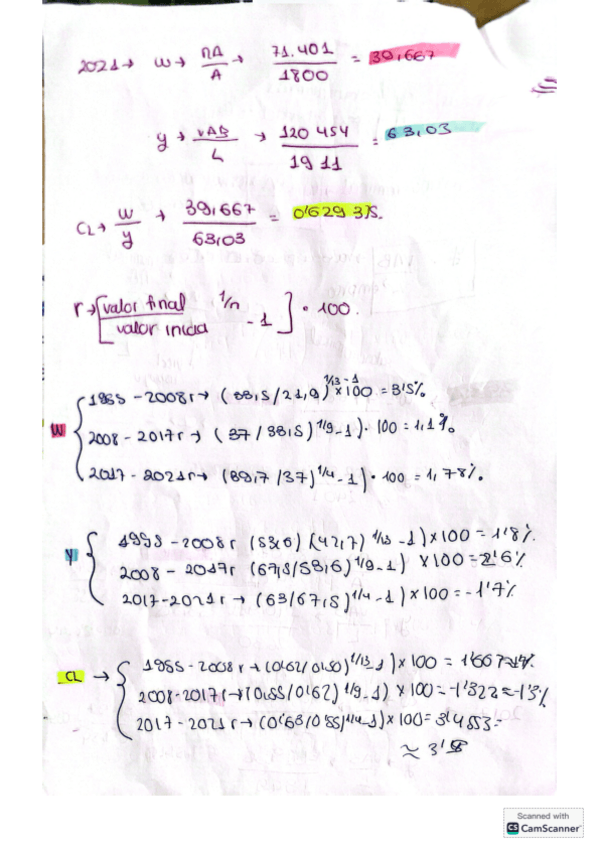 2021 → w → RA/A → 71.401/1800 = 39,667
y → VAB/L → 120 454/1911 = 63,03
CL → w/y → 39,667/63,03 = 0'629 315.
r → [valor final/valor inicia 1/n - 1] · 100.
W
1995 - 2008 r → (38,5/21,9) 1/13 - 1 × 100 = 3'5%
2008 - 2017 r → (37/38,5) 1/9 - 1) · 100 = 1,1%.
2017 - 2021 r → (39,7/37) 1/4 - 1) · 100 = 1,78%.
Y
1995 - 2008 r (53,6) (42,7) 1/13 - 1) × 100 = 1'8%
2008 - 2017 r → (67,5/58,6) 1/9 - 1) × 100 = 2'6%
2017 - 2021 r → (63/67,5) 1/4 - 1) × 100 = -1'7%
CL →
1995 - 2008 r → (0'62/0'50) 1/13 - 1) × 100 = 1'667
2008 - 2017 r → (0'55/0'62) 1/9 - 1) × 100 = -1'322 ≈ -1'3%
2017 - 2021 r → (0'63/0'55) 1/4 - 1) × 100 = 3'4553 -
≈ 3'5
Scanned with
CS CamScanner